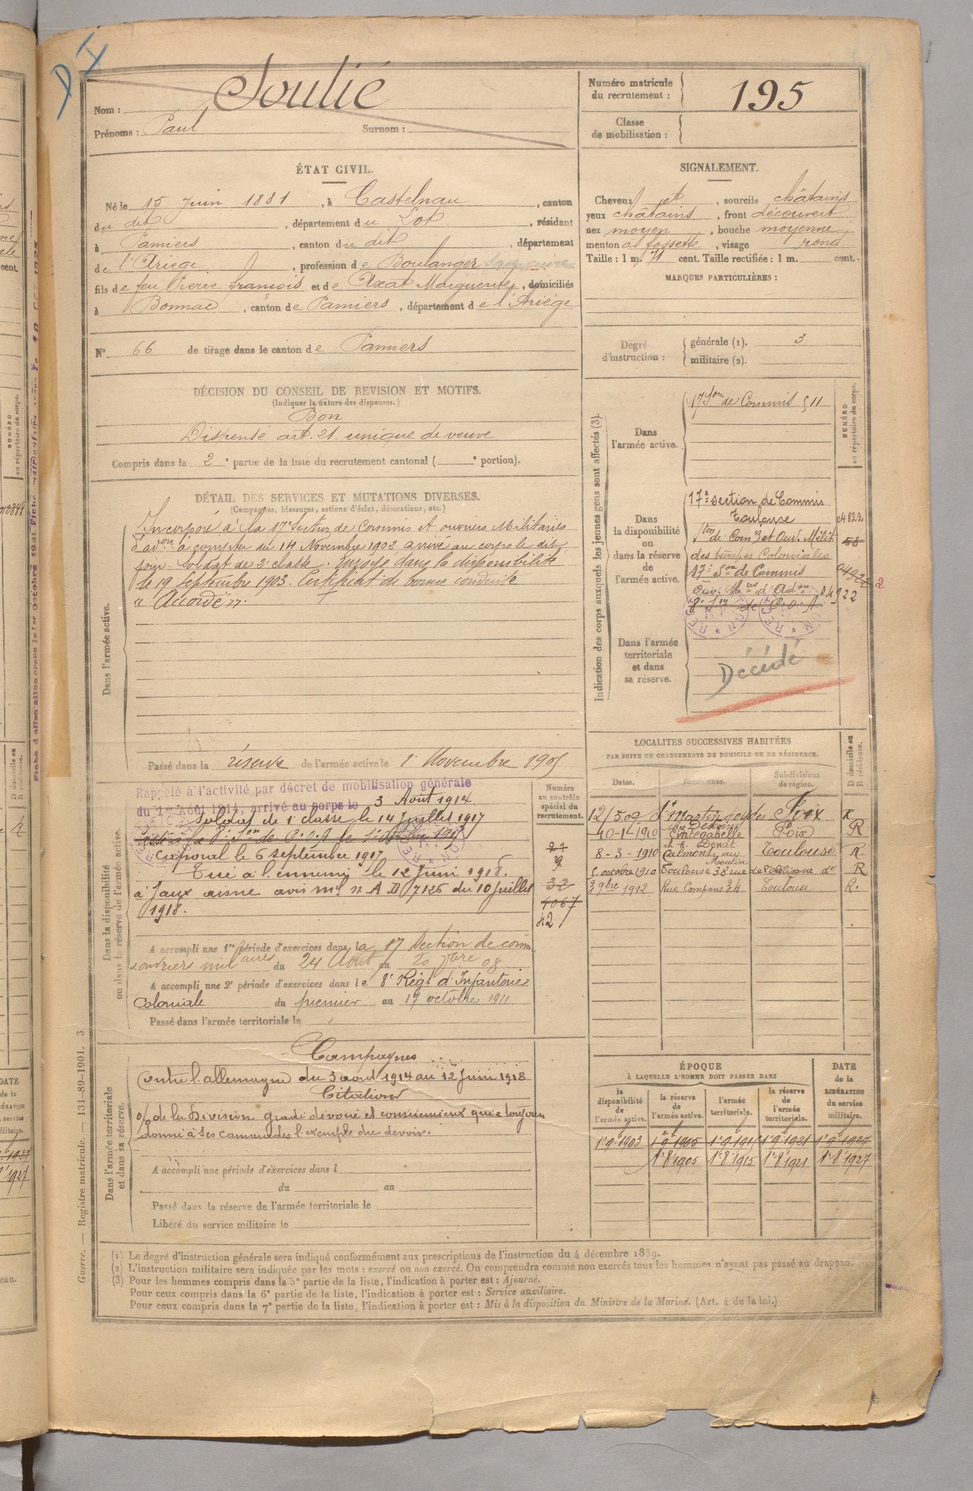 Nom : Soulié
Prénoms : Paul Surnom :
Numéro matricule du recrutement : 195
Classe de mobilisation :
ÉTAT CIVIL.
Né le 15 juin 1881, à Castelnau, canton
du dit, département du Lot, résidant
à Pamiers, canton du dit, département
de l'Ariège, profession de Boulanger
fils de feu Pierre françois et de Azat Marguerite, domiciliés
à Bonnac, canton de Pamiers, département de l'Ariège
N° 66 de tirage dans le canton de Pamiers
SIGNALEMENT.
Cheveux et, sourcils châtains
yeux châtains, front découvert
nez moyen, bouche moyenne
menton à fossette, visage rond
Taille : 1 m. 71 cent. Taille rectifiée : 1 m. cent.
MARQUES PARTICULIÈRES :
Degré d'instruction : générale (1). 3
militaire (2).
DÉCISION DU CONSEIL DE REVISION ET MOTIFS.
(Indiquer la nature des dispenses.)
Bon
Dispensé art. 21 unique de veuve
Compris dans la 2e partie de la liste du recrutement cantonal ( e portion).
DÉTAIL DES SERVICES ET MUTATIONS DIVERSES.
(Campagnes, blessures, actions d'éclat, décorations, etc.)
Dans l'armée active.
Incorporé à la 17e Section de Commis et ouvriers Militaires
d'Adon à compter du 14 Novembre 1902 arrivé au corps le dit
jour Soldat de 2e classe. Envoyé dans la disponibilité
le 19 Septembre 1903. Certificat de bonne conduite
" Accordé ".
Passé dans la réserve de l'armée active le 1er Novembre 1905
Indication des corps auxquels les jeunes gens sont affectés (3).
NUMÉRO au répertoire du corps.
Dans l'armée active.
17e Son de Commis
Dans la disponibilité ou dans la réserve de l'armée active.
17e section de Commis
Toulouse
Son de Com. et Ouv. Milit.
des troupes Coloniales
17e Son de Commis
04922
Dans l'armée territoriale et dans sa réserve.
Décédé
Dans la disponibilité ou dans la réserve de l'armée active.
Numéro au contrôle spécial du recrutement.
Rappelé à l'activité par décret de mobilisation générale
du 1er Août 1914, arrivé au corps le 3 Août 1914
Soldat de 1e classe le 14 Juillet 1917
Caporal le 6 septembre 1917
Tué à l'ennemi le 12 Juin 1918.
à Jaux aisne avis ml n° A D/7126 du 10 juillet
1918.
32
427
A accompli une 1re période d'exercices dans la 17 Section de com
ouvriers militaires du 24 Août au 20 7bre 08
A accompli une 2e période d'exercices dans le 8e Régt d'Infanterie
Coloniale du premier au 17 octobre 1911
Passé dans l'armée territoriale le
LOCALITÉS SUCCESSIVES HABITÉES
PAR SUITE DE CHANGEMENTS DE DOMICILE OU DE RÉSIDENCE.
Dates. Communes. Subdivisions de région. D domicile ou R résidence.
12/5 09 Foix R
10-1-1910 Cintegabelle Foix R
8-3-1910 Calmont au Moulin Toulouse R.
5 octobre 1910 Toulouse 38 rue de R
9bre 1912 Rue Compans 24 Toulouse R.
Dans l'armée territoriale et dans sa réserve.
Campagnes
Contre l'allemagne du 3 août 1914 au 12 Juin 1918
Citation
O/ de la Division gradé dévoué et consciencieux qui a toujours
donné à ses camarades l'exemple du devoir.
A accompli une période d'exercices dans l
du au
Passé dans la réserve de l'armée territoriale le
Libéré du service militaire le
ÉPOQUE
À LAQUELLE L'HOMME DOIT PASSER DANS
la disponibilité de l'armée active. la réserve de l'armée active. l'armée territoriale. la réserve de l'armée territoriale. DATE de la LIBÉRATION du service militaire.
1er 9 1903 1er 9 1905 1er 9 1915 1er 9 1921 1er 9 1927
1er 8 1905 1er 8 1915 1er 8 1921 1er 8 1927
(1) Le degré d'instruction générale sera indiqué conformément aux prescriptions de l'instruction du 4 décembre 1889.
(2) L'instruction militaire sera indiquée par les mots : exercé ou non exercé. On comprendra comme non exercés tous les hommes n'ayant pas passé au drapeau.
(3) Pour les hommes compris dans la 5e partie de la liste, l'indication à porter est : Ajourné.
Pour ceux compris dans la 6e partie de la liste, l'indication à porter est : Service auxiliaire.
Pour ceux compris dans la 7e partie de la liste, l'indication à porter est : Mis à la disposition du Ministre de la Marine. (Art. 4 de la loi.)
Guerre. — Registre matricule. 131-89-1901. 3